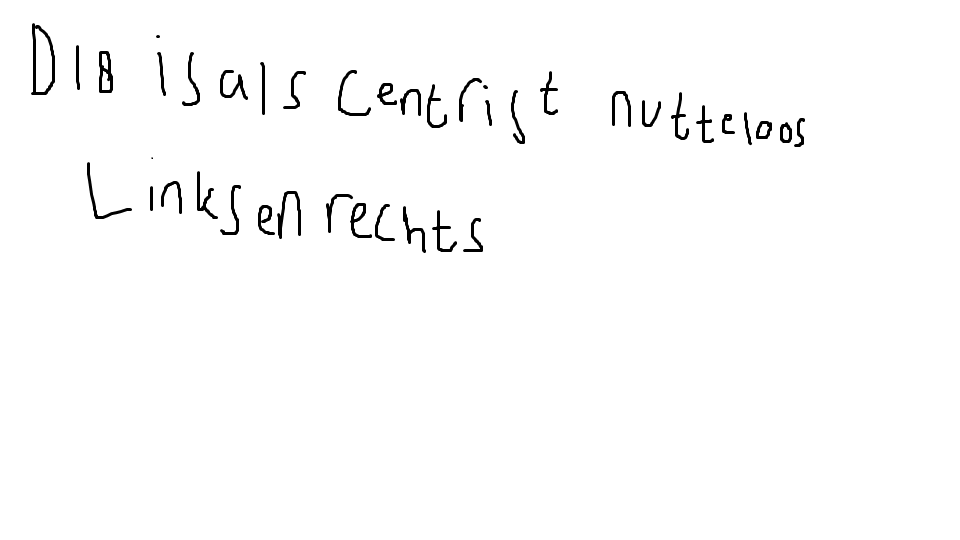 D18 is als centrist nutteloos
Links en rechts